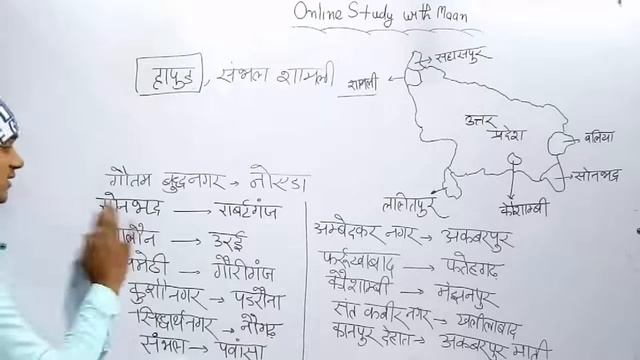 Online Study with Maan
हापुड़, संभल शामली
शामली
सहारनपुर
उत्तर
प्रदेश
बलिया
सोनभद्र
कौशाम्बी
ललितपुर
गौतम बुद्धनगर → नोएडा
सोनभद्र — राबर्टगंज
जालौन → उरई
अमेठी → गौरीगंज
कुशीनगर → पडरौना
सिद्धार्थनगर → नौगढ़
संभल → पवांसा
अम्बेदकर नगर → अकबरपुर
फर्रुखाबाद → फतेहगढ़
कौशाम्बी → मंझनपुर
संत कबीर नगर → खलीलाबाद
कानपुर देहात → अकबरपुर माती